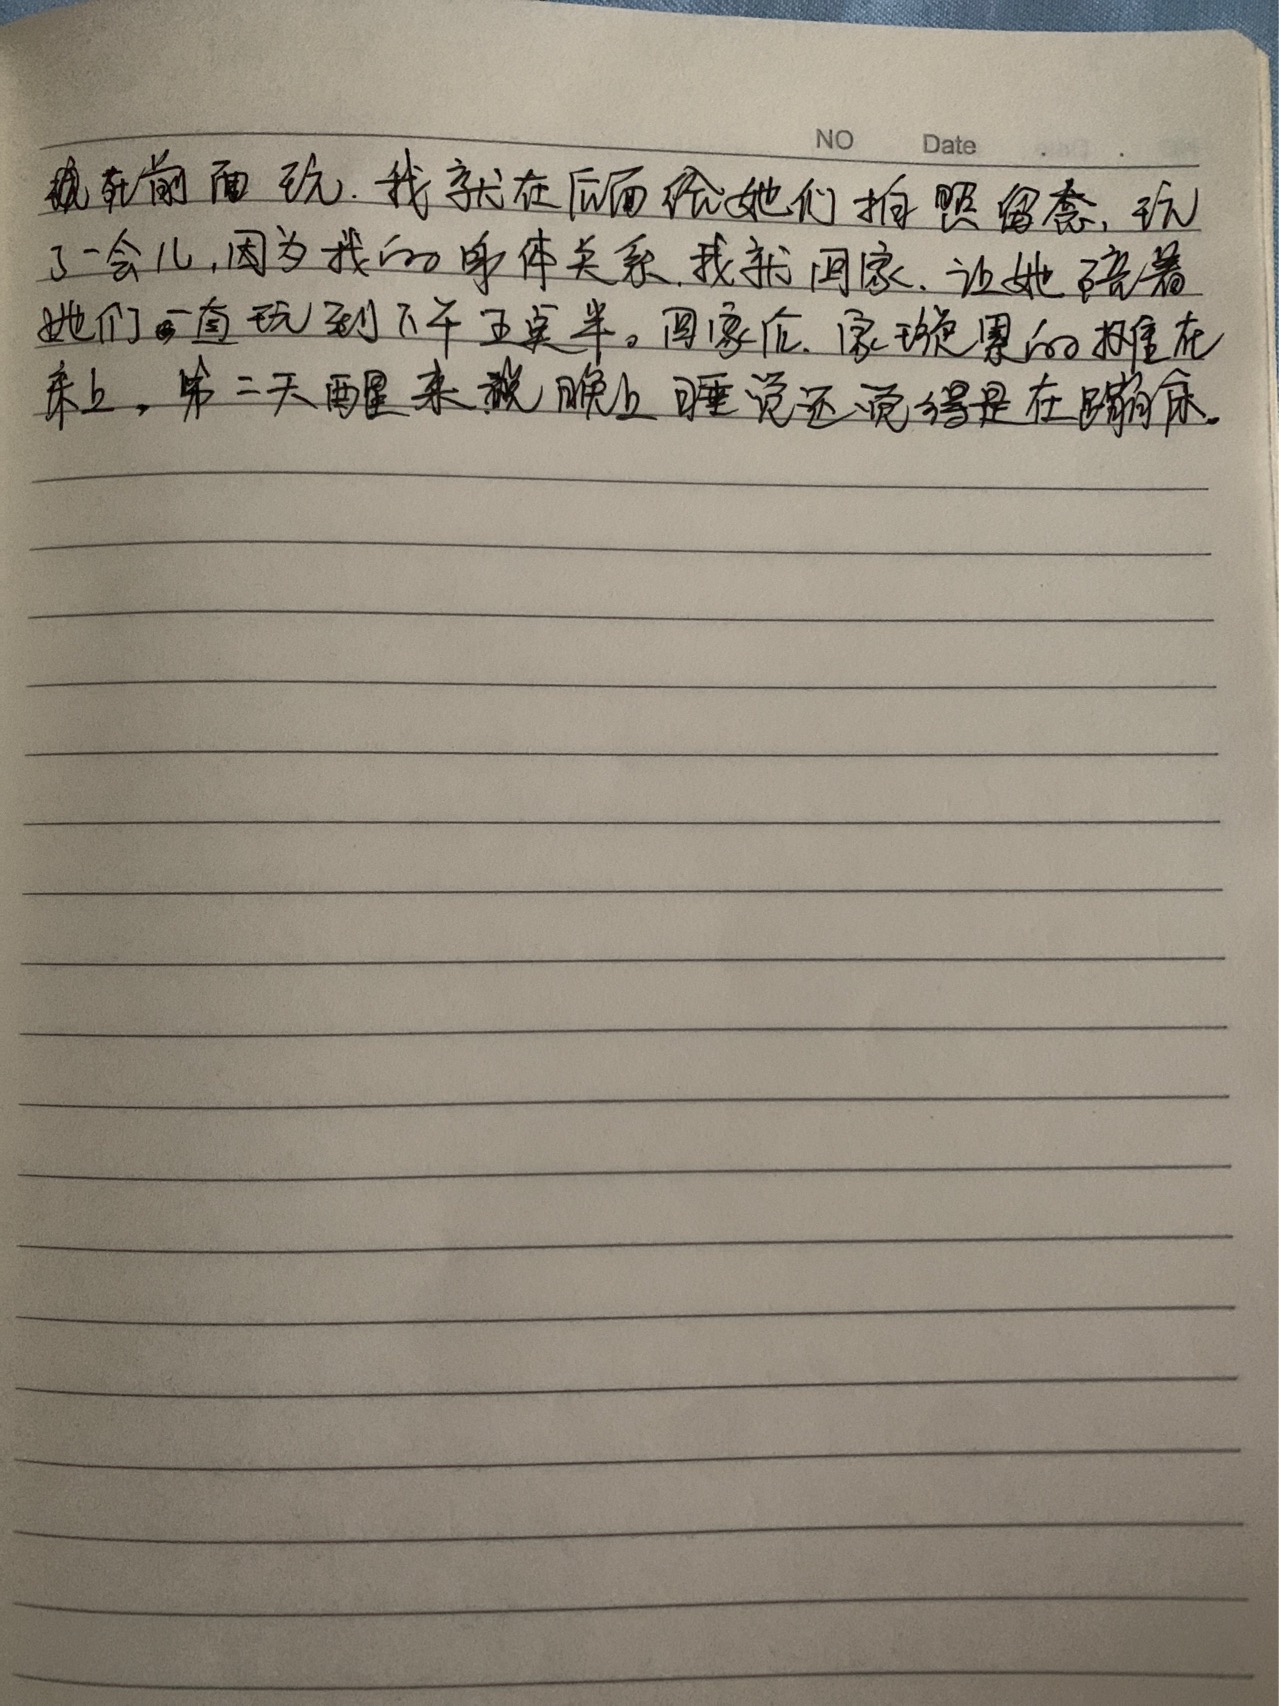 NO Date
在前面玩.我就在后面给她们拍照留念,玩
了一会儿,因为我的身体关系.我就回家.让她陪着
她们一直玩到下午五点半。回家后.家璇累的摊在
床上,第二天醒来说晚上睡觉还觉得是在蹦床.